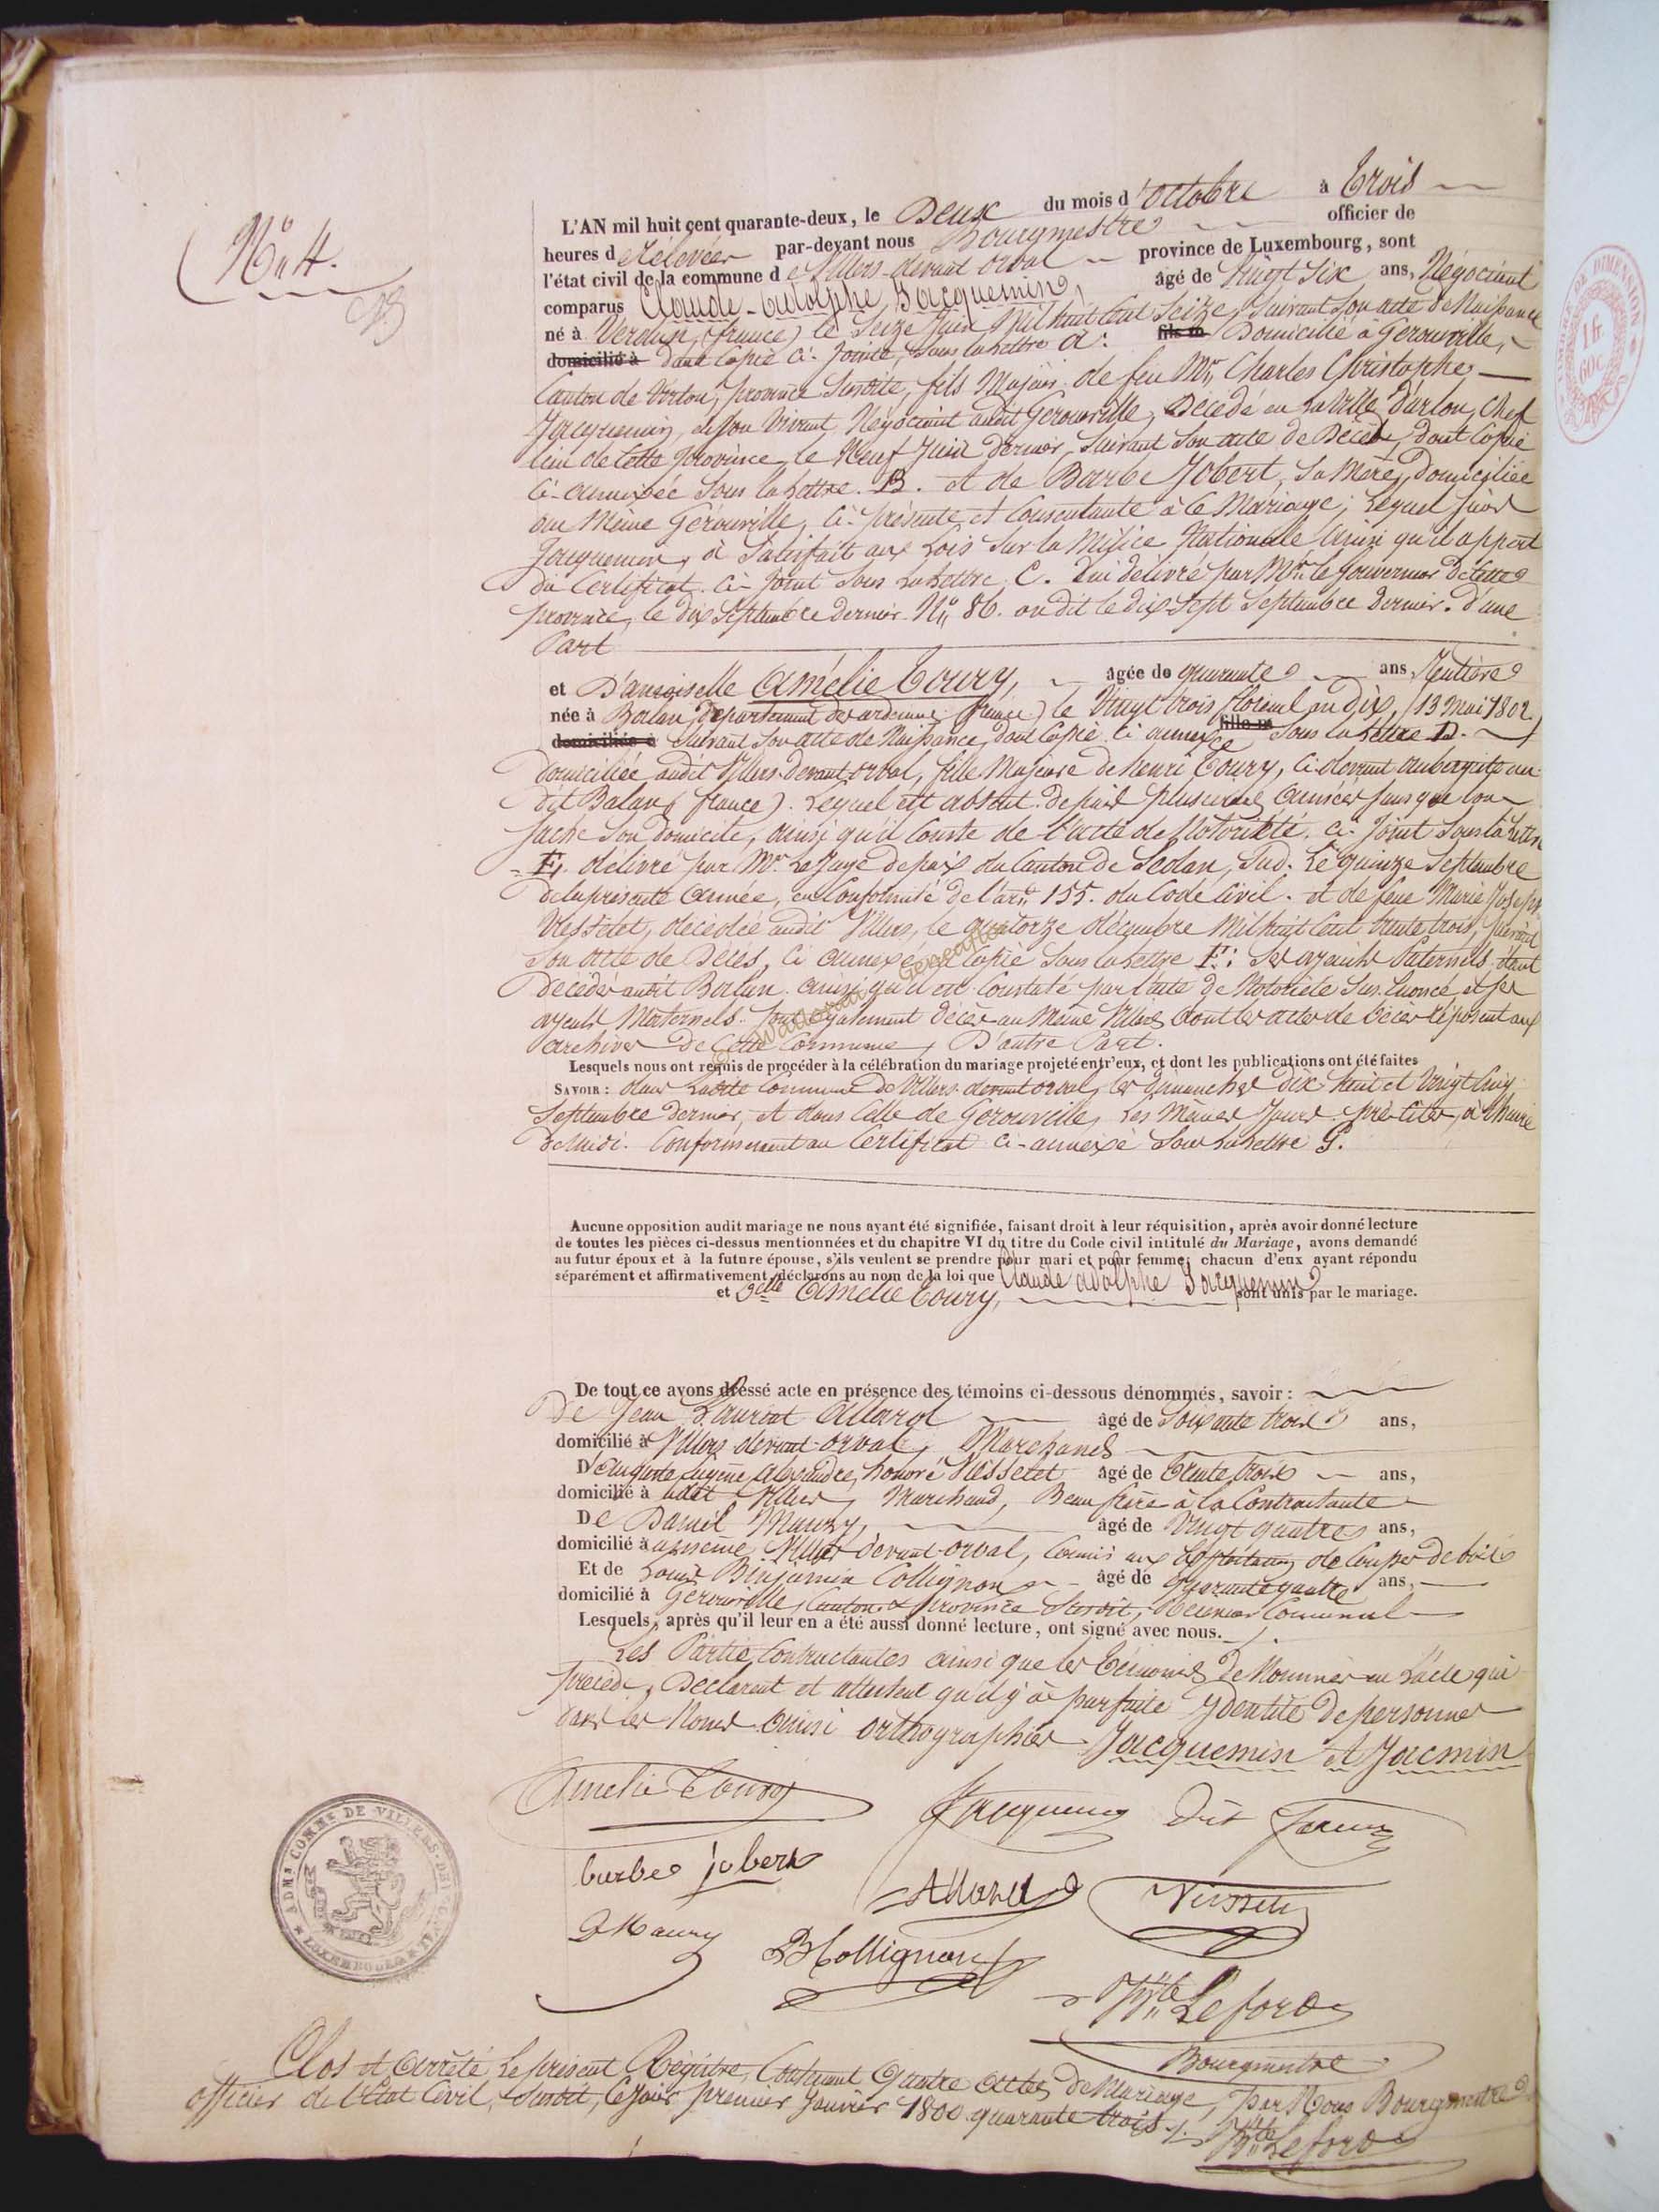 N° 4.
L'AN mil huit cent quarante-deux, le Deux du mois d'Octobre à trois
heures de rélevée par-devant nous Bourgmestre officier de
l'état civil de la commune de Villers-devant-orval province de Luxembourg, sont
comparus Claude-Adolphe Jacquemin, âgé de Vingt Six ans, Négociant
né à Verdun, (france) le Seize Juin Mil huit Cent Seize, Suivant Son acte de Naissance
domicilié à dont Copie Ci-Jointe, Sous la lettre A: fils m Domicilié à Gerouville,
Canton de Virton, province Susdite, fils Majeur de feu Mr. Charles Christophe
Jacquemin, de Son Vivant Négociant audit Gerouville, Décédé en la Ville d'arlon, Chef
lieu de Cette province, le Neuf Juin dernier, Suivant Son acte de Décès, dont Copie
Ci-annexée Sous la Lettre B. et de Barbe Jobert, Sa Mère, Domiciliée
au Même Gérouville, Ci-présente et Consentante à Ce Mariage; Lequel
Jacquemin, à Satisfait aux Lois Sur la Milice Nationale Ainsi qu'il appert
du Certificat Ci-Joint Sous La Lettre C. Lui délivré par Mr. le Gouverneur de Cette
province, le dix Septembre dernier N° 86. on dit le dix Sept Septembre Dernier. D'une
Part
et Damoiselle Amélie Toury, âgée de quarante ans, Rentière
née à Balan, (Département des ardennes france) le Vingt trois floréal an Dix, (13 Mai 1802)
domiciliée à Suivant Son acte de Naissance, dont Copie Ci annexée fille m Sous la lettre D.
Domiciliée audit Villers-devant-orval, fille Majeure de henri Toury, Ci-devant aubergiste au
dit Balan (france). Lequel est absent depuis plusieurs années sans que l'on
sache Son Domicile, ainsi qu'il Conste de l'acte de Notoriété Ci-Joint Sous la Lettre
E, délivré par Mr. Le Juge de paix du Canton de Sedan, Sud: Le quinze Septembre
de la présente année, en Conformité de l'art. 155. du Code Civil. et de feue Marie Joseph
Vessetet, décédée audit Villers, le quatorze décembre Mil huit Cent trente trois, Suivant
Son acte de Décès, Ci annexé Copie Sous la Lettre F: Ses ayeuls Paternels étant
Décédés audit Balan ainsi qu'il est Constaté par l'acte de Notoriété Sus énoncé, et Ses
ayeuls Maternels Sont également décédés au Même Villers dont les actes de Décès réposent aux
archives de Cette Commune, D'autre Part.
Lesquels nous ont requis de procéder à la célébration du mariage projeté entr'eux, et dont les publications ont été faites
SAVOIR: dans Ladite Commune de Villers-devant orval, les Dimanches Dix-huit et Vingt Cinq
Septembre dernier, et dans Celle de Gerouville, les Mêmes Jours pré-cités, à l'heure
de Midi. Conformément au Certificat Ci-annexé Sous la Lettre G.
Aucune opposition audit mariage ne nous ayant été signifiée, faisant droit à leur réquisition, après avoir donné lecture
de toutes les pièces ci-dessus mentionnées et du chapitre VI du titre du Code civil intitulé du Mariage, avons demandé
au futur époux et à la future épouse, s'ils veulent se prendre pour mari et pour femme; chacun d'eux ayant répondu
séparément et affirmativement, déclarons au nom de la loi que Claude adolphe Jacquemin
et Delle Amélie Toury, sont unis par le mariage.
De tout ce avons dressé acte en présence des témoins ci-dessous dénommés, savoir:
De Jean Laurent Allard âgé de Soixante trois ans,
domicilié à Villers devant-orval, Marchand
D'auguste Eugène alexandre, honoré Vessetet âgé de trente trois ans,
domicilié à udit Villers, Marchand, Beau frère à la Contractante
De Daniel Maury, âgé de Vingt quatre ans,
domicilié à u même Villers devant-orval, Commis aux Exploitations de Coupes de bois
Et de Louis Binjamin Collignon âgé de quarante quatre ans,
domicilié à Gérouville, Canton & province Susdit, Receveur Communal
Lesquels, après qu'il leur en a été aussi donné lecture, ont signé avec nous.
Les Parties Contractantes ainsi que les témoins dénommés en L'acte qui
précède, Déclarent et attestent qu'il y à parfaite ydentité de personnes
dans les Noms ainsi orthographiés Jacquemin et Jacmin
Amelie Toury
Jacquemin dit Jacmin
barbe jobert
Allard
Vessetet
D Maury
LB Collignon
Lefort
Bourgmestre
ADM COMNE DE VILLERS-DEVT-ORVAL
LUXEMBOURG
Clos et arrêté Le présent Régistre, Contenant quatre actes de Mariage, par Nous Bourgmestre
officier de l'Etat Civil, Susdit, Ce Jour premier Janvier 1800 quarante trois.
Lefort
TIMBRE DE DIMENSION
1 fr.
60 c.